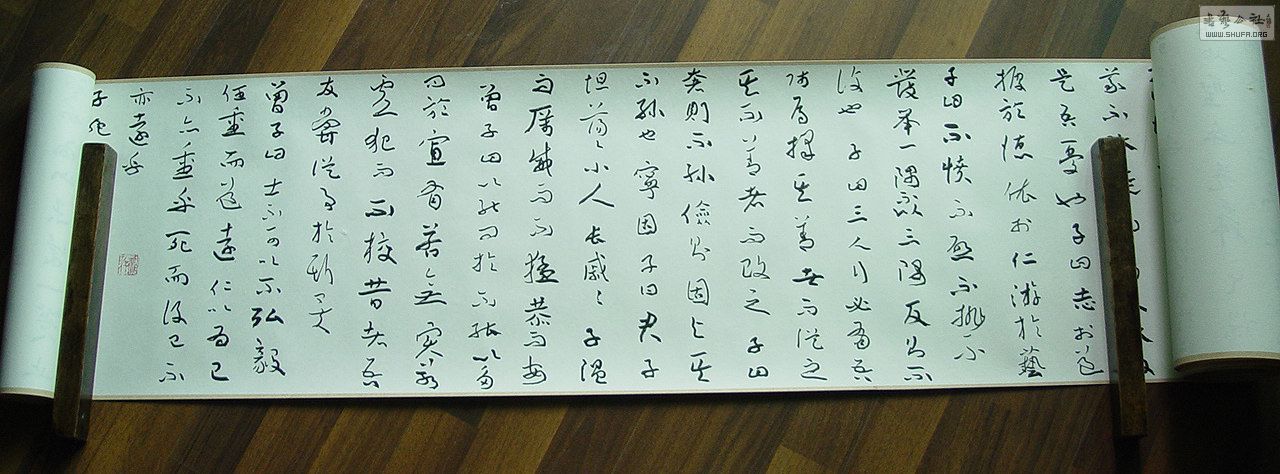 義不
是吾憂也子曰志於道
據於德依於仁游於藝
子曰不憤不啟不悱不
發舉一隅不以三隅反則不
復也子曰三人行必有吾
師焉擇其善者而從之
其不善者而改之子曰
奢則不孫儉則固與其
不孫也寧固子曰君子
坦蕩〻小人長戚〻子溫
而厲威而不猛恭而安
曾子曰以能問於不能以多
問於寡有若無實若
虛犯而不校昔者吾
友嘗從事於斯矣
曾子曰士不可以不弘毅
任重而道遠仁以為己
不亦重乎死而後已不
亦遠乎
子
書藝公社
WWW.SHUFA.ORG